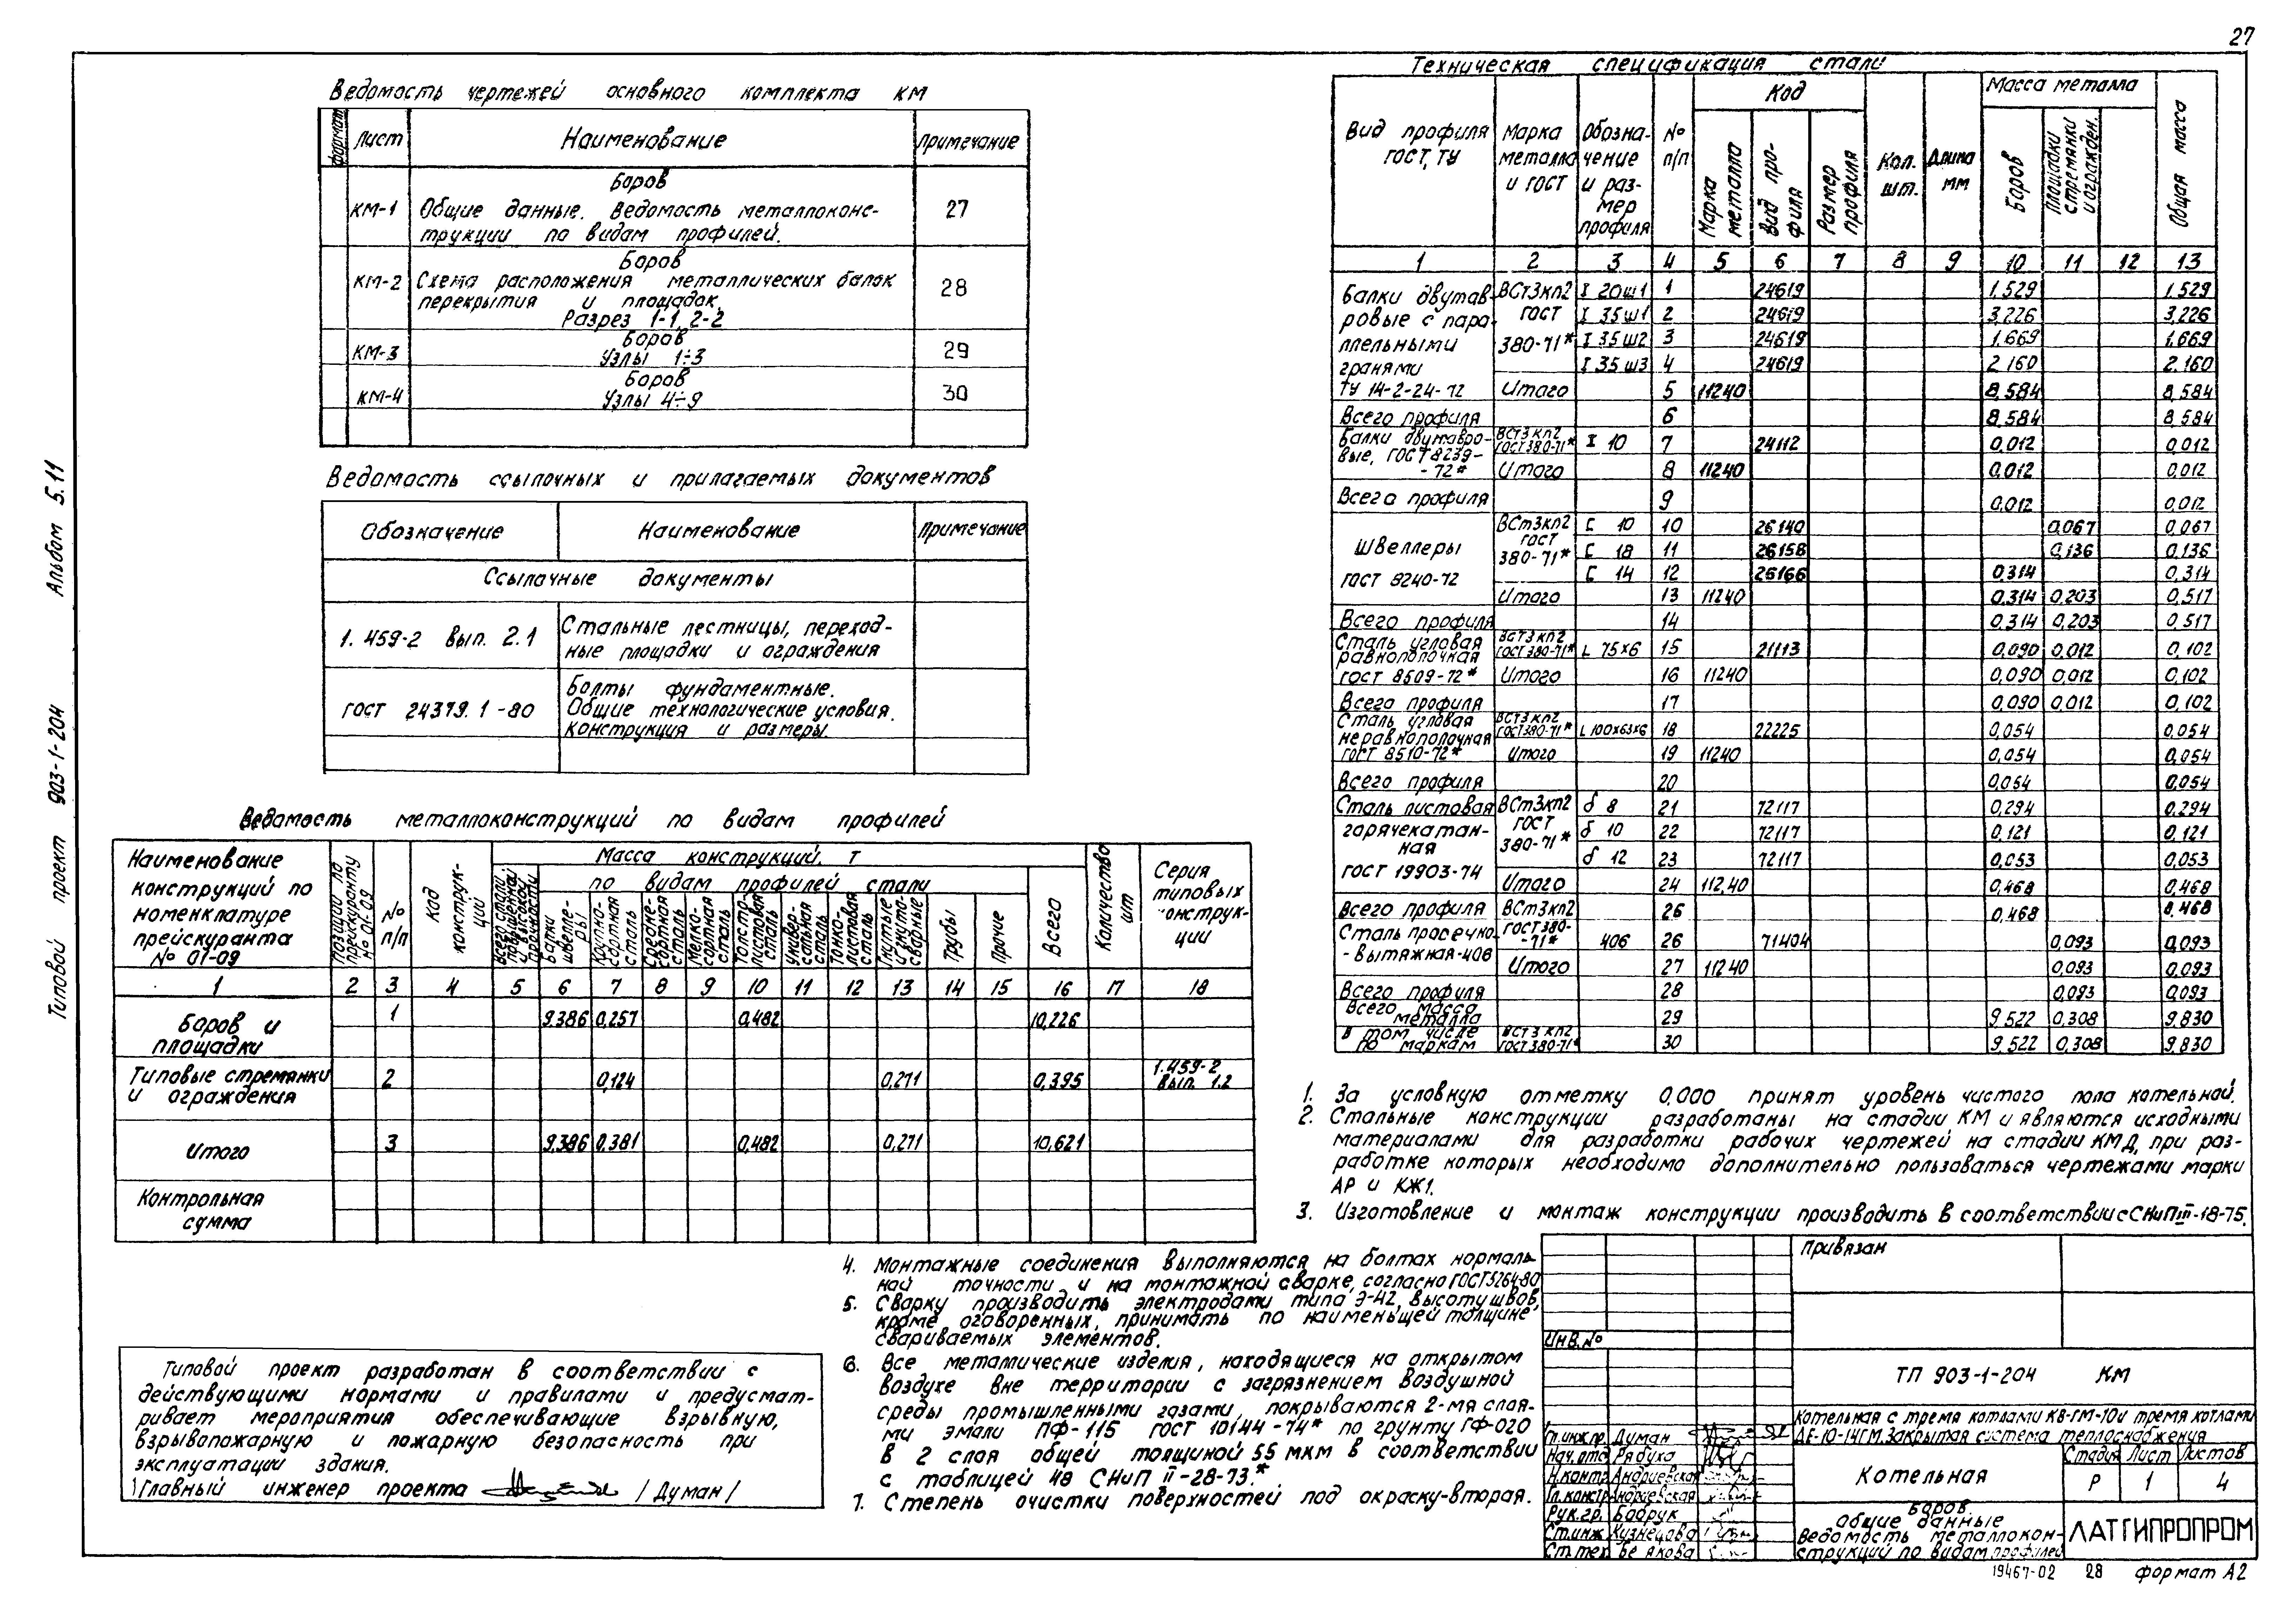 27
Альбом 5.11
Типовой проект 903-1-204
Ведомость чертежей основного комплекта КМ
формат Лист Наименование Примечание
Боров
КМ-1 Общие данные. Ведомость металлоконс- 27
трукции по видам профилей.
Боров
КМ-2 Схема расположения металлических балок 28
перекрытия и площадок.
Разрез 1-1, 2-2
Боров
КМ-3 Узлы 1÷3 29
Боров
КМ-4 Узлы 4÷9 30
Ведомость ссылочных и прилагаемых документов
Обозначение Наименование Примечание
Ссылочные документы
1. 459-2 вып. 2.1 Стальные лестницы, переход-
ные площадки и ограждения
ГОСТ 24379.1-80 Болты фундаментные.
Общие технологические условия.
Конструкция и размеры.
Ведомость металлоконструкций по видам профилей
Наименование конструкций по номенклатуре прейскуранта № 01-09
Позиции по прейскуранту № 01-09
№ п/п
Код конструк-ций
Масса конструкций, т
Всего стали повышенной и высокой прочности
по видам профилей стали
Балки швелле-ры
Крупно-сортная сталь
Средне-сортная сталь
Мелко-сортная сталь
Толсто-листовая сталь
Универ-сальная сталь
Тонко-листовая сталь
Гнутые и гнуто-сварные
Трубы
Прочие
Всего
Количество шт
Серия типовых конструк-ций
1 2 3 4 5 6 7 8 9 10 11 12 13 14 15 16 17 18
Боров и площадки 1 9.386 0,257 0,482 10,226
Типовые стремянки и ограждения 2 0,124 0,271 0,395 1.459-2 Вып. 1.2
Итого 3 9.386 0,381 0,482 0,271 10,621
Контрольная сумма
Техническая спецификация стали
Вид профиля ГОСТ, ТУ
Марка металла и ГОСТ
Обозна-чение и раз-мер профиля
№ п/п
Код
Марка металла
Вид про-филя
Размер профиля
Кол. шт.
Длина мм
Масса металла
Боров
Площадки стремянки и огражден.
Общая масса
1 2 3 4 5 6 7 8 9 10 11 12 13
Балки двутав- ВСт3кп2 I 20ш1 1 24619 1.529 1.529
ровые с пара- ГОСТ I 35ш1 2 24619 3,226 3,226
ллельными 380-71* I 35ш2 3 24619 1.669 1.669
гранями I 35ш3 4 24619 2.160 2.160
ТУ 14-2-24-72 Итого 5 11240 8.584 8,584
Всего профиля 6 8.584 8.584
Балки двутавро- ВСт3кп2 ГОСТ380-71* I 10 7 24112 0,012 0,012
вые, ГОСТ 8239-72* Итого 8 11240 0,012 0,012
Всего профиля 9 0,012 0,012
ВСт3кп2 [ 10 10 26140 0,067 0,067
Швеллеры ГОСТ 380-71* [ 18 11 26158 0,136 0,136
ГОСТ 8240-72 [ 14 12 26166 0,314 0,314
Итого 13 11240 0,314 0,203 0,517
Всего профиля 14 0,314 0,203 0,517
Сталь угловая равнополочная ВСт3кп2 ГОСТ380-71* L 75х6 15 21113 0,090 0,012 0,102
ГОСТ 8509-72* Итого 16 11240 0,090 0,012 0,102
Всего профиля 17 0,090 0,012 0,102
Сталь угловая неравнополочная ВСт3кп2 ГОСТ380-71* L 100х63х6 18 22225 0,054 0,054
ГОСТ 8510-72* Итого 19 11240 0,054 0,054
Всего профиля 20 0,054 0,054
Сталь листовая ВСт3кп2 δ 8 21 72117 0,294 0,294
горячекатан- ГОСТ δ 10 22 72117 0,121 0,121
ная 380-71* δ 12 23 72117 0,053 0,053
ГОСТ 19903-74 Итого 24 112,40 0,468 0,468
Всего профиля ВСт3кп2 26 0,468 0,468
Сталь просечно- ГОСТ380-71* 406 26 71404 0,093 0,093
-вытяжная-408 Итого 27 11240 0,093 0,093
Всего профиля 28 0,093 0,093
Всего масса металла 29 9.522 0,308 9.830
В том числе по маркам ВСТ3кп2 ГОСТ380-71* 30 9.522 0,308 9.830
1. За условную отметку 0,000 принят уровень чистого пола котельной.
2. Стальные конструкции разработаны на стадии КМ и являются исходными
материалами для разработки рабочих чертежей на стадии КМД, при раз-
работке которых необходимо дополнительно пользоваться чертежами марки
АР и КЖ1.
3. Изготовление и монтаж конструкции производить в соответствии с СНиП III-18-75.
4. Монтажные соединения выполняются на болтах нормаль-
ной точности и на монтажной сварке, согласно ГОСТ5264-80
5. Сварку производить электродами типа Э-42, высоту швов,
кроме оговоренных, принимать по наименьшей толщине
свариваемых элементов.
6. Все металлические изделия, находящиеся на открытом
воздухе вне территории с загрязнением воздушной
среды промышленными газами, покрываются 2-мя слоя-
ми эмали ПФ-115 ГОСТ 10144-74* по грунту ГФ-020
в 2 слоя общей толщиной 55 мкм в соответствии
с таблицей 48 СНиП II-28-73.*
7. Степень очистки поверхностей под окраску-вторая.
Типовой проект разработан в соответствии с
действующими нормами и правилами и предусмат-
ривает мероприятия обеспечивающие взрывную,
взрывопожарную и пожарную безопасность при
эксплуатации здания.
Главный инженер проекта /Думан/
Привязан
Инв.№
ТП 903-1-204 КМ
Котельная с тремя котлами КВ-ГМ-10 и тремя котлами
ДЕ-10-14ГМ. Закрытая система теплоснабжения
Гл.инж.пр. Думан
Нач.отд. Рябуха
Н.контр. Андриевская
Гл.констр. Андриевская
Рук.гр. Бобрук
Ст.инж. Кузнецова
Ст.тех.
Котельная
Стадия Лист Листов
Р 1 4
Боров.
Общие данные
Ведомость металлокон-
струкций по видам профилей
ЛАТГИПРОПРОМ
19467-02 28 формат А2